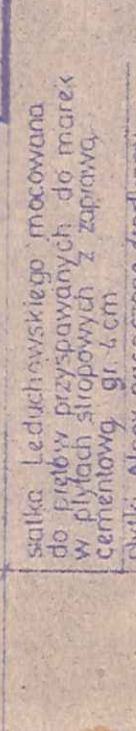 siatka Leduchowskiego mocowana
do prętów przyspawanych do marek
w płytach stropowych z zaprawą
cementową gr
cm